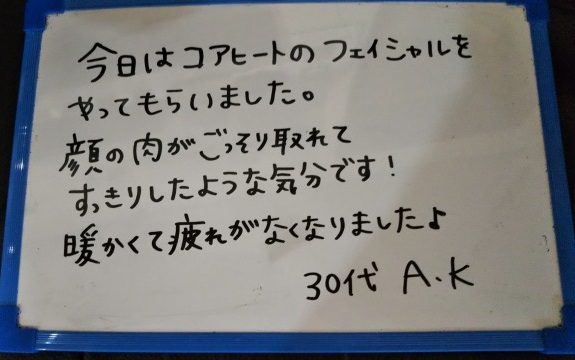 今日はコアヒートのフェイシャルを
やってもらいました。
顔の肉がごっそり取れて
すっきりしたような気分です!
暖かくて疲れがなくなりましたよ
30代 A.K